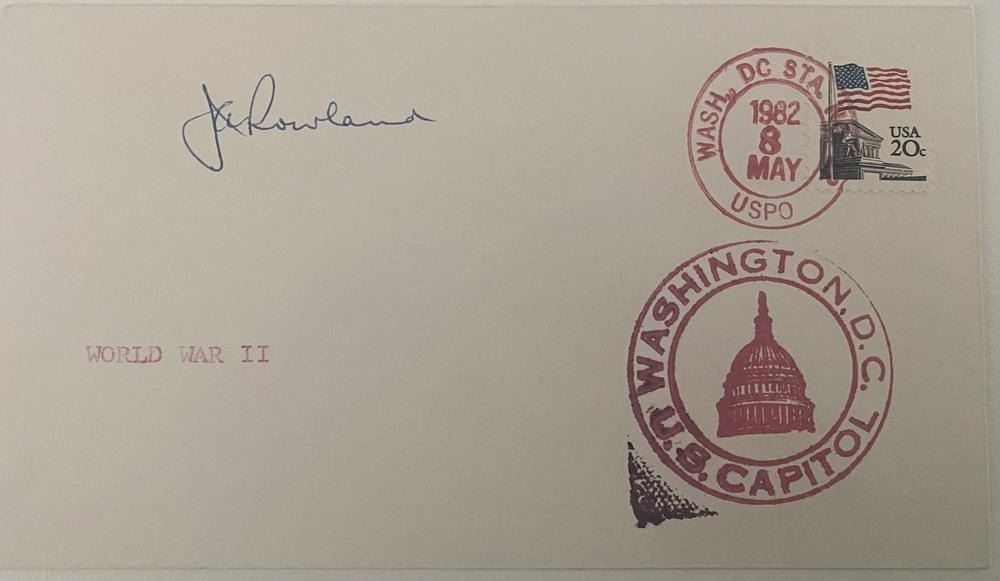 J A Rowland
WASH., DC STA.
1982
8
MAY
USPO
USA
20c
WASHINGTON, D.C.
U.S. CAPITOL
WORLD WAR II